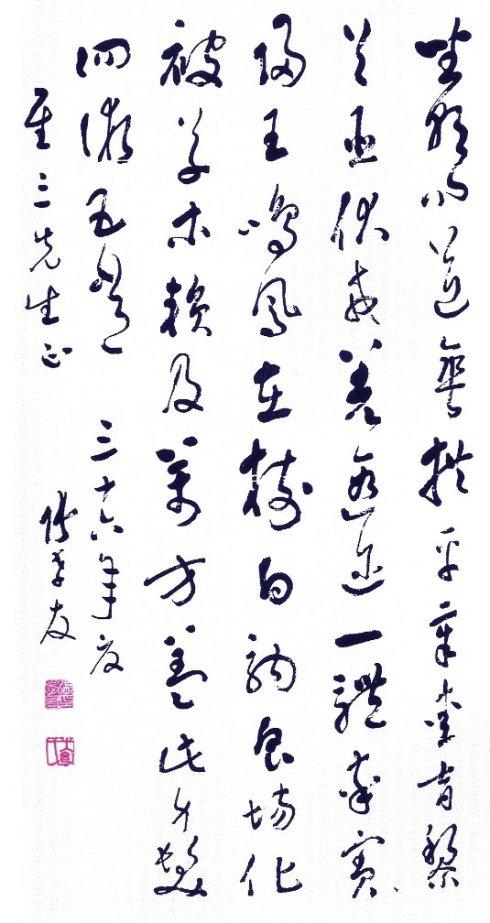 坐朝問道垂拱平章愛育黎
首臣伏戎羌遐邇一體率賓
歸王鳴鳳在樹白駒食場化
被草木賴及萬方蓋此身髮
四五 三十六年夏
三先生正